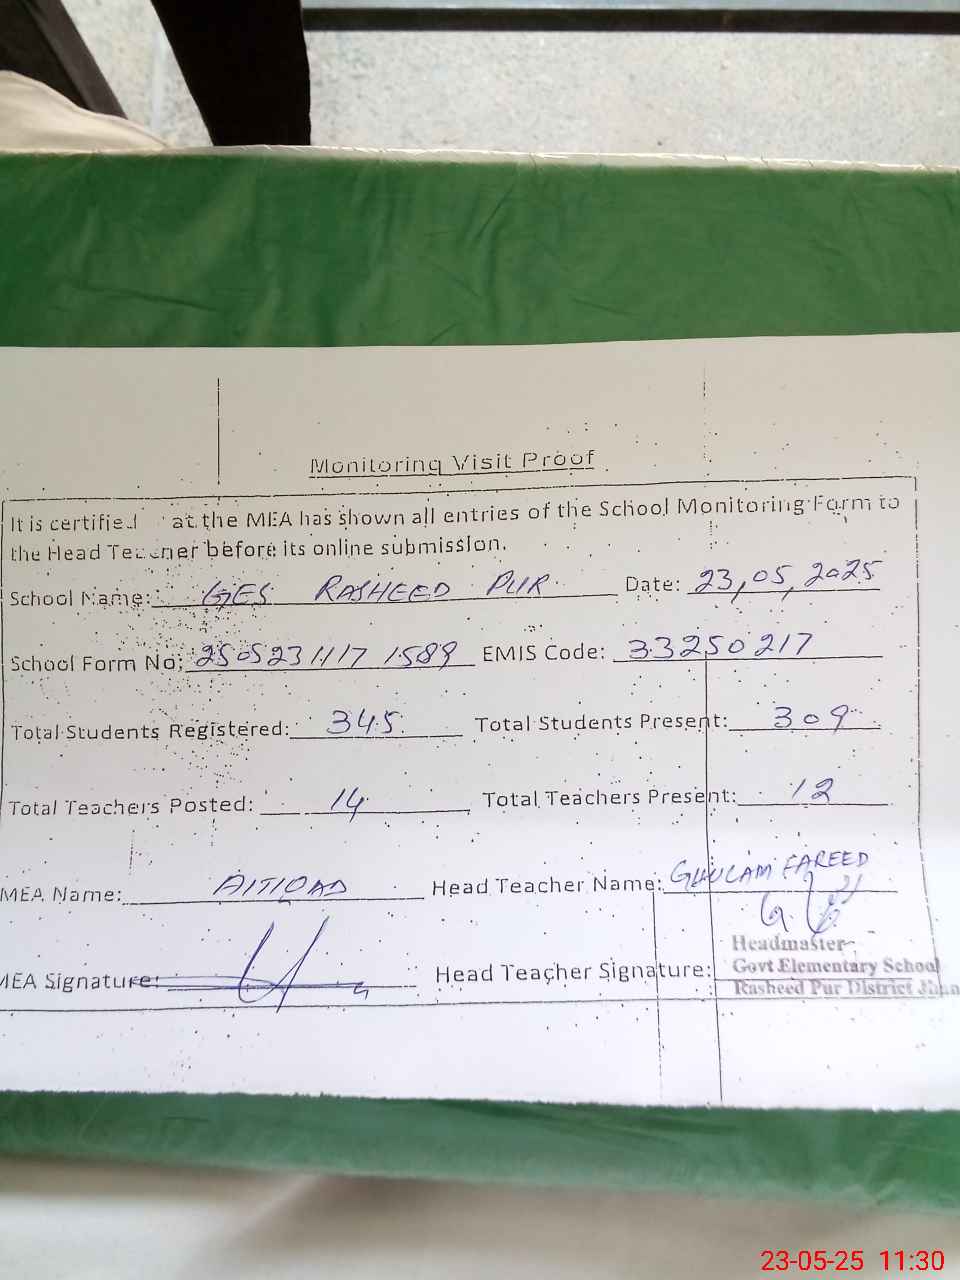 Monitoring Visit Proof
It is certified at the MEA has shown all entries of the School Monitoring Form to
the Head Teacher before its online submission.
School Name: GES RASHEED PUR Date: 23,05,2025
School Form No: 2505231117 1589 EMIS Code: 33250217
Total Students Registered: 345 Total Students Present: 309
Total Teachers Posted: 14 Total Teachers Present: 12
MEA Name: Head Teacher Name: GHULAM FAREED
MEA Signature: Head Teacher Signature:
Headmaster
Govt Elementary School
Rasheed Pur District
23-05-25 11:30